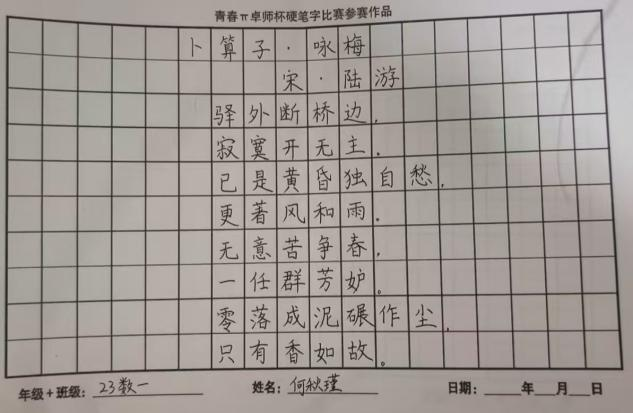 青春π卓师杯硬笔字比赛参赛作品
卜算子·咏梅
宋·陆游
驿外断桥边,
寂寞开无主。
已是黄昏独自愁,
更著风和雨。
无意苦争春,
一任群芳妒。
零落成泥碾作尘,
只有香如故。
年级+班级: 23数一 姓名: 何秋瑾 日期: 年 月 日